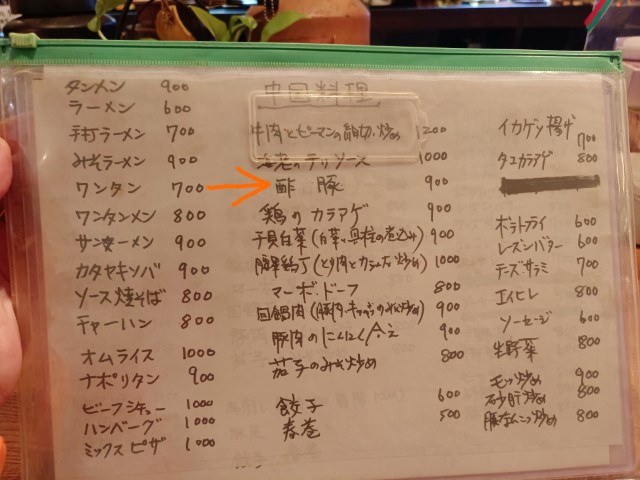 タンメン 900
ラーメン 600
手打ラーメン 700
みそラーメン 900
ワンタン 700
ワンタンメン 800
サンマーメン 900
カタヤキソバ 900
ソース焼そば 800
チャーハン 800
オムライス 1000
ナポリタン 900
ビーフシチュー 1000
ハンバーグ 1000
ミックスピザ 1000
中国料理
牛肉とピーマンの細切り炒め 1200
海老のチリソース 1000
酢豚 900
鶏のカラアゲ 900
干貝白菜(白菜と貝柱の煮込み) 900
腰果鶏丁(とり肉とカシューナッツ炒め) 1000
マーボドーフ 800
回鍋肉(豚肉、キャベツのみそ炒め) 900
豚肉のにんにく合え 900
茄子のみそ炒め 800
餃子 600
春巻 500
イカゲソ揚げ 700
タコカラアゲ 800
ポテトフライ 600
レーズンバター 600
チーズサラミ 700
エイヒレ 800
ソーセージ 600
生野菜 800
モツ炒め 900
砂肝炒め 800
豚なんこつ炒め 800